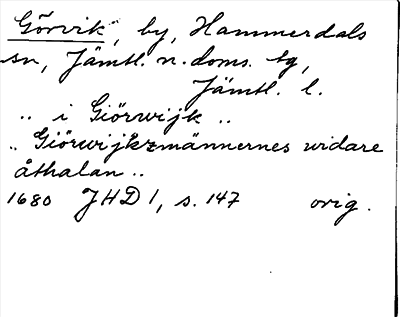 Görvik, by, Hammerdals
sn, Jämtl. n. doms. tg,
Jämtl. l.
.. i Giörwijk ..
.. Giörwijkzmännernes widare
åthalan ..
1680 JHD 1, s. 147 orig.